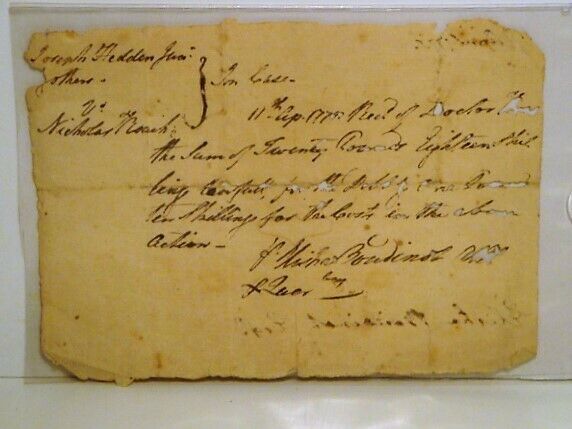 Joseph Hedden Junr
& others -
vs
Nicholas Roach
In Case -
11th Ap. 1775. Recd of Doctor
the Sum of Twenty Pounds Eighteen Shil
ling for the Debt & one Pound
ten Shillings for the Costs in the above
action -
Elisha Boudinot